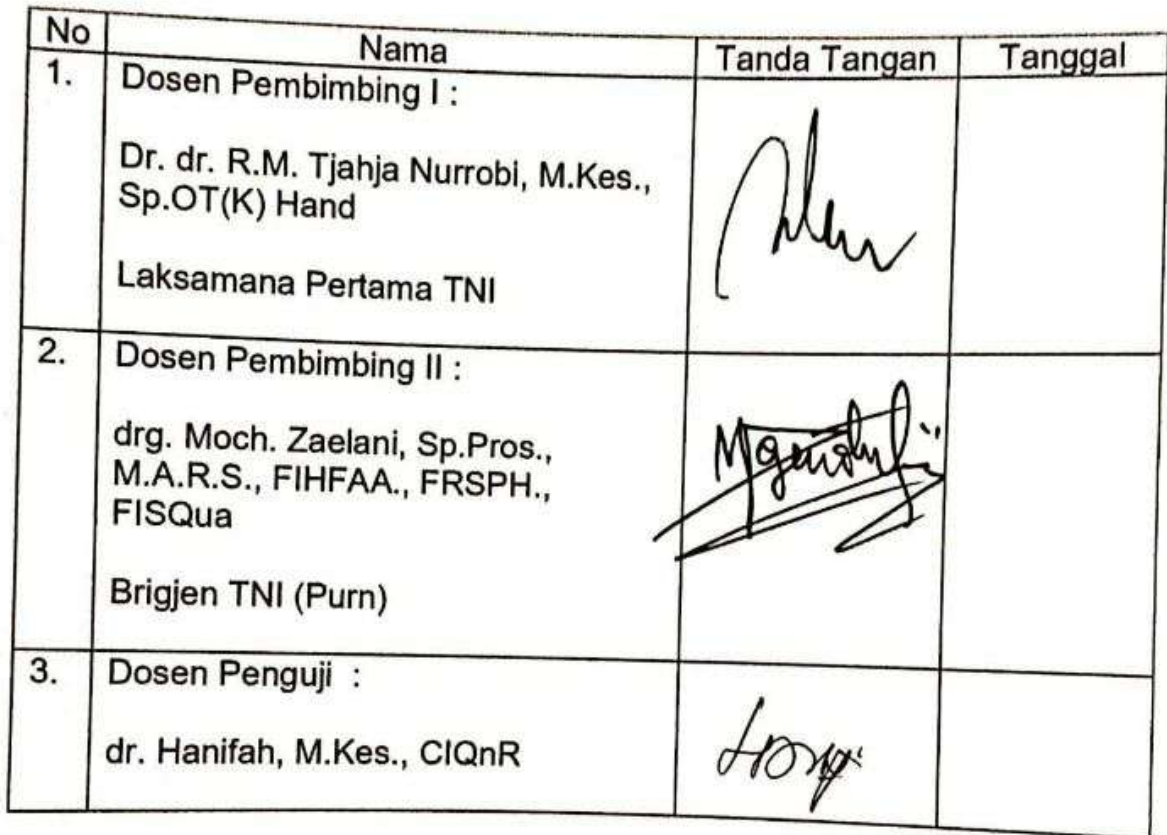 No Nama Tanda Tangan Tanggal
1. Dosen Pembimbing I :
Dr. dr. R.M. Tjahja Nurrobi, M.Kes.,
Sp.OT(K) Hand
Laksamana Pertama TNI
2. Dosen Pembimbing II :
drg. Moch. Zaelani, Sp.Pros.,
M.A.R.S., FIHFAA., FRSPH.,
FISQua
Brigjen TNI (Purn)
3. Dosen Penguji :
dr. Hanifah, M.Kes., CIQnR